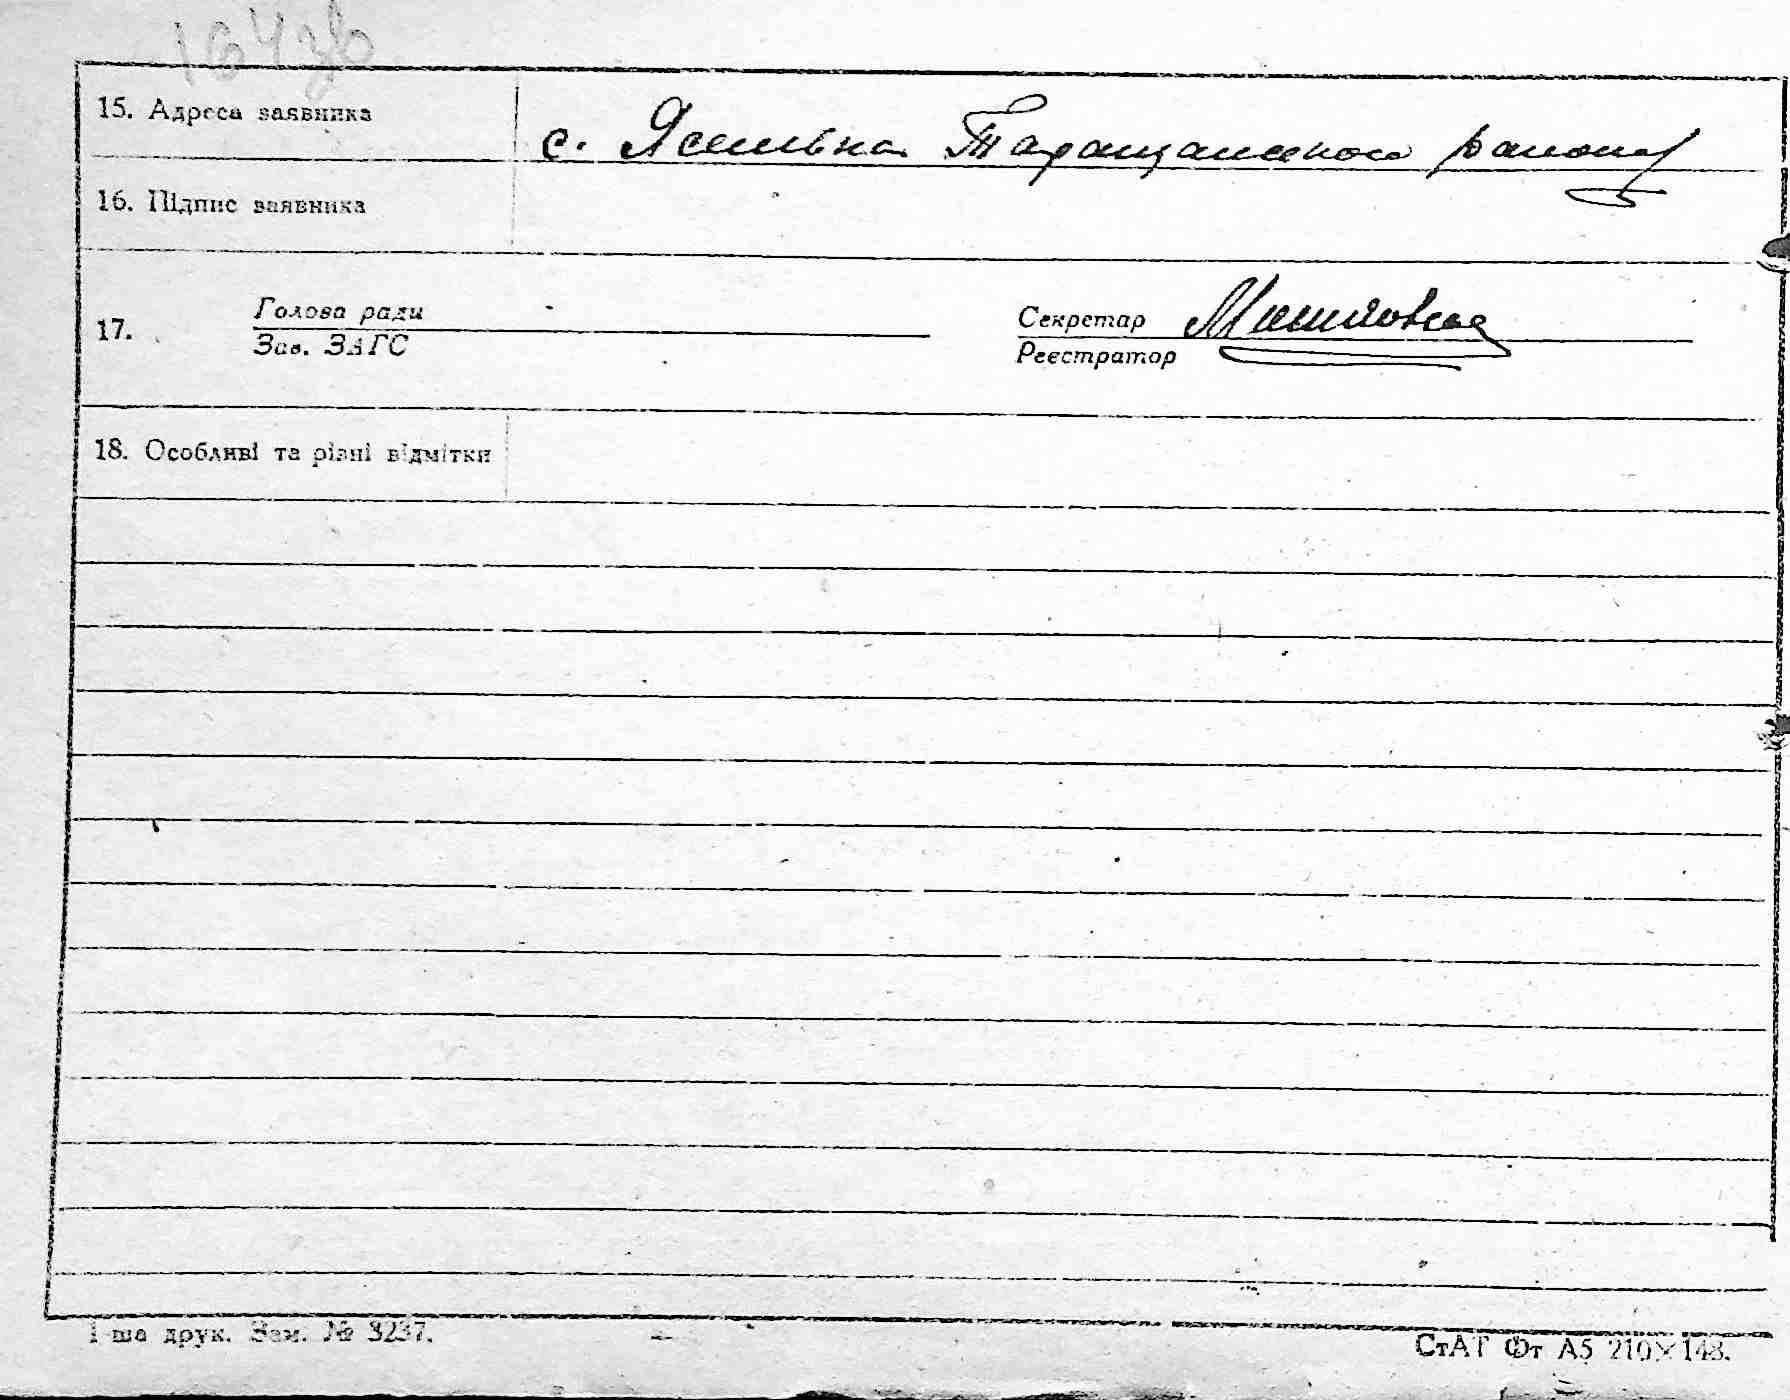 164зв
15. Адреса заявника с. Ясенівка Таращанського району
16. Підпис заявника
17. Голова ради Секретар
Зав. ЗАГС Реєстратор
18. Особливі та різні відмітки
1 ша друк. Зам. № 3237.
СтАТ Фт А5 210×148.